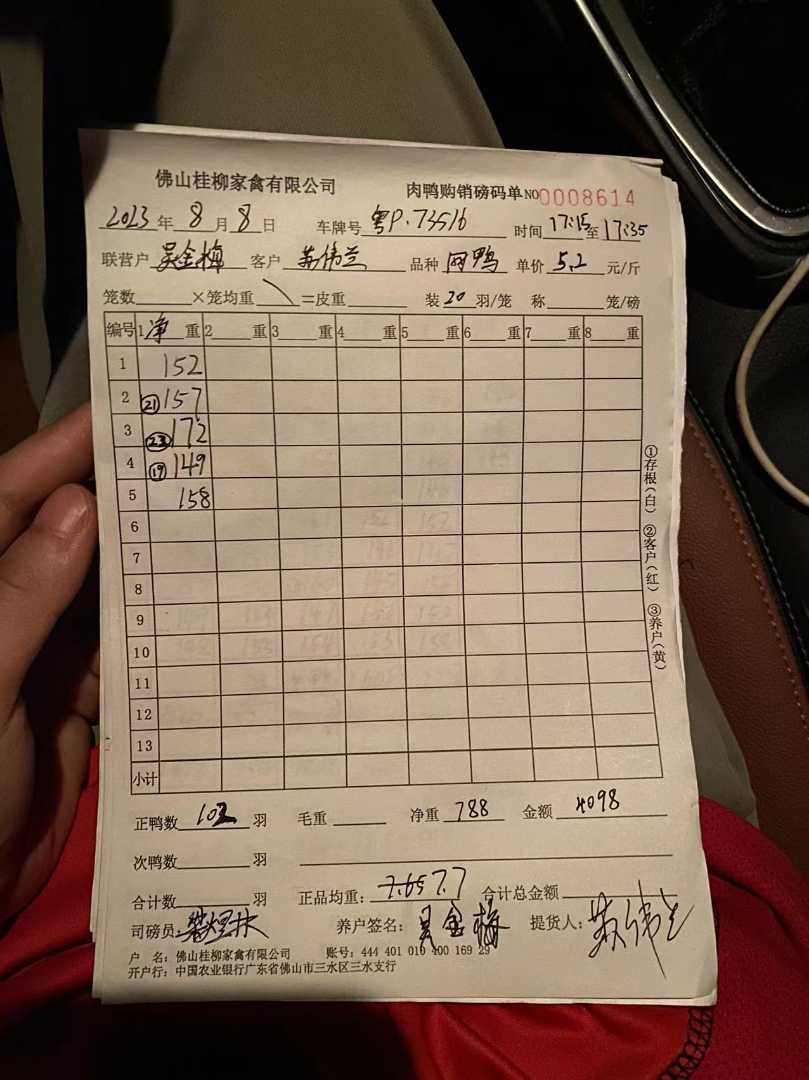 佛山桂柳家禽有限公司 肉鸭购销磅码单 NO 0008614
2023年 8月 8日 车牌号 粤P·73516 时间 17:15至17:35
联营户 吴金梅 客户 苏伟兰 品种 网鸭 单价 5.2 元/斤
笼数 ×笼均重 \ =皮重 装 20 羽/笼 称 笼/磅
编号 1 净 重 2 重 3 重 4 重 5 重 6 重 7 重 8 重
1 152
2 ㉑157
3 ㉓172
4 ⑲149
5 158
6
7
8
9
10
11
12
13
小计
①存根(白) ②客户(红) ③养户(黄)
正鸭数 103 羽 毛重 净重 788 金额 4098
次鸭数 羽
合计数 羽 正品均重: 7.65 7.7 合计总金额
司磅员: 养户签名: 吴金梅 提货人: 苏伟兰
户 名: 佛山桂柳家禽有限公司 账号: 444 401 010 400 169 29
开户行: 中国农业银行广东省佛山市三水区三水支行